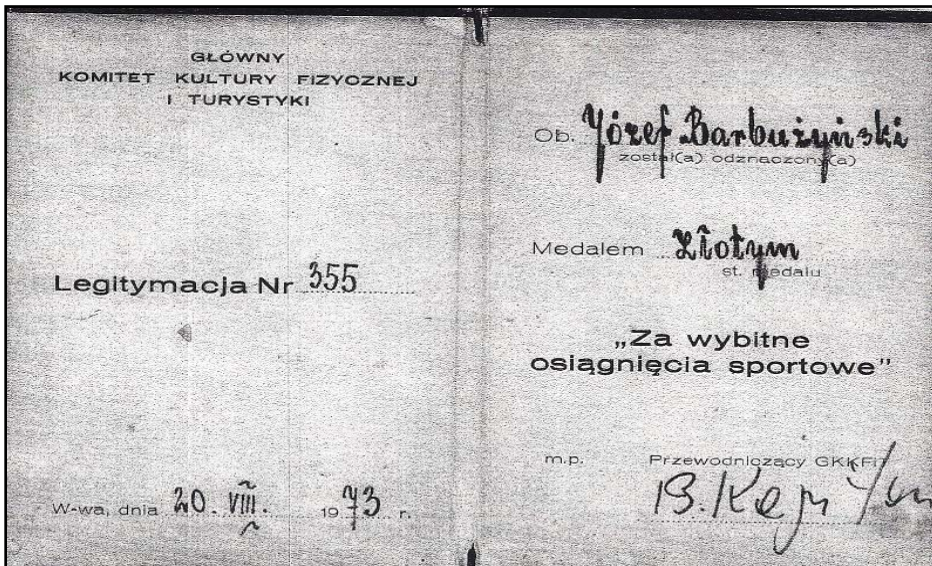 GŁÓWNY
KOMITET KULTURY FIZYCZNEJ
I TURYSTYKI
Legitymacja Nr 355
W-wa, dnia 20. VIII. 1973 r.
Ob. Józef Barbużyński
został(a) odznaczony(a)
Medalem złotym
st. medalu
„Za wybitne
osiągnięcia sportowe"
m.p. Przewodniczący GKKFiT
B.